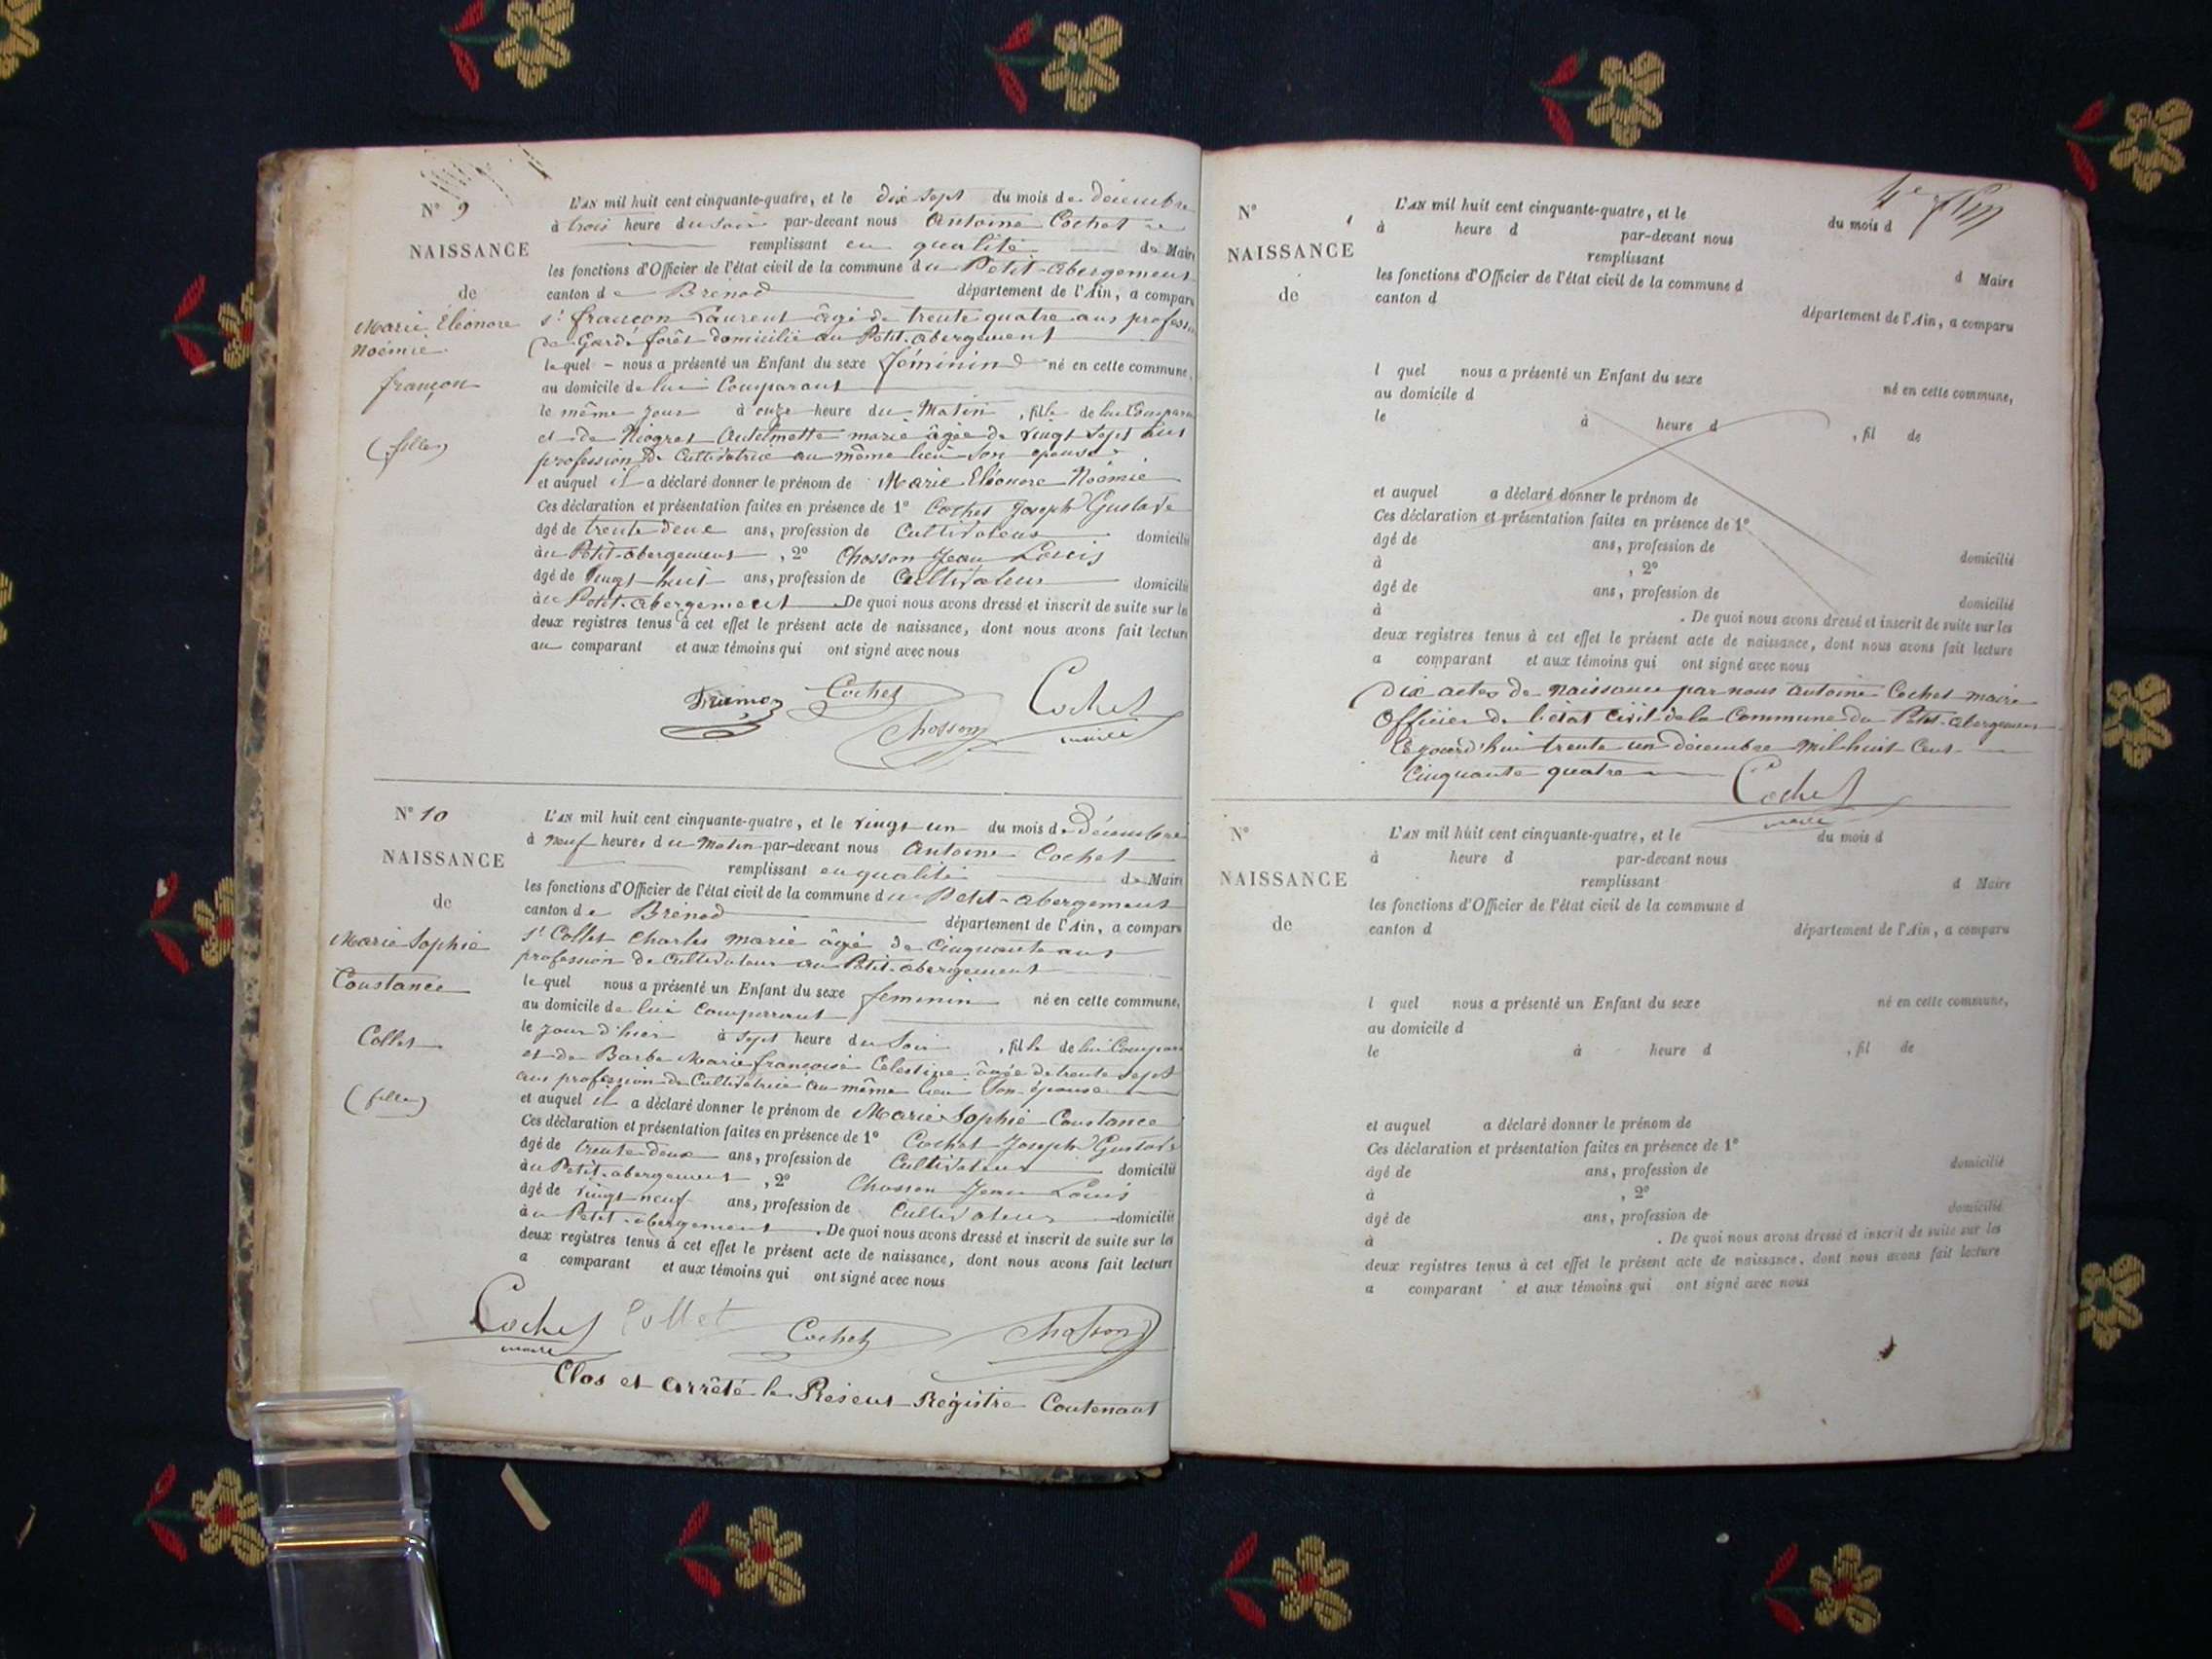 N° 9
NAISSANCE
de
Marie Eléonore
Noémie
françon
(fille)
L'AN mil huit cent cinquante-quatre, et le dix sept du mois de décembre
à trois heure du soir par-devant nous Antoine Cochet
remplissant en qualité de Maire
les fonctions d'Officier de l'état civil de la commune du Petit-abergement
canton de Brenod département de l'Ain, a comparu
sr françon Laurent âgé de trente quatre ans profession
de Garde forêt domicilié au Petit-abergement
lequel nous a présenté un Enfant du sexe féminin né en cette commune,
au domicile de lui Comparant
le même jour à onze heure du Matin , fille de lui Comparant
et de Niogret Anthelmette marie âgée de vingt sept ans
profession de Cultivatrice au même lieu Son épouse
et auquel il a déclaré donner le prénom de Marie Eléonore Noémie
Ces déclaration et présentation faites en présence de 1° Cochet Joseph Gustave
âgé de trente deux ans, profession de Cultivateur domicilié
au Petit-abergement , 2° Chosson Jean Louis
âgé de vingt huit ans, profession de Cultivateur domicilié
au Petit-abergement De quoi nous avons dressé et inscrit de suite sur les
deux registres tenus à cet effet le présent acte de naissance, dont nous avons fait lecture
au comparant et aux témoins qui ont signé avec nous
Cochet
Cochet
Chosson
maire
N° 10
NAISSANCE
de
Marie Sophie
Constance
Collet
(fille)
L'AN mil huit cent cinquante-quatre, et le vingt un du mois de Décembre
à neuf heures du Matin par-devant nous Antoine Cochet
remplissant en qualité de Maire
les fonctions d'Officier de l'état civil de la commune du Petit-abergement
canton de Brénod département de l'Ain, a comparu
sr Collet Charles marie âgé de Cinquante ans
profession de Cultivateur au Petit-abergement
lequel nous a présenté un Enfant du sexe feminin né en cette commune,
au domicile de lui Comparrant
le jour d'hier à sept heure du Soir , fille de lui Comparant
et de Barbe Marie françoise Celestine âgée de trente sept
ans profession de Cultivatrice au même lieu Son épouse
et auquel il a déclaré donner le prénom de Marie Sophie Constance
Ces déclaration et présentation faites en présence de 1° Cochet Joseph Gustave
âgé de trente deux ans, profession de Cultivateur domicilié
au Petit-abergement , 2° Chosson Jean Louis
âgé de vingt neuf ans, profession de Cultivateur domicilié
au Petit-abergement . De quoi nous avons dressé et inscrit de suite sur les
deux registres tenus à cet effet le présent acte de naissance, dont nous avons fait lecture
a comparant et aux témoins qui ont signé avec nous
Cochet Collet Cochet Chosson
maire
Clos et arrêté le Présent Régistre Contenant
N°
NAISSANCE
de
L'AN mil huit cent cinquante-quatre, et le du mois d
à heure d par-devant nous
remplissant d Maire
les fonctions d'Officier de l'état civil de la commune d
canton d département de l'Ain, a comparu
l quel nous a présenté un Enfant du sexe né en cette commune,
au domicile d
le à heure d , fil de
et auquel a déclaré donner le prénom de
Ces déclaration et présentation faites en présence de 1°
âgé de ans, profession de domicilié
à , 2°
âgé de ans, profession de domicilié
à . De quoi nous avons dressé et inscrit de suite sur les
deux registres tenus à cet effet le présent acte de naissance, dont nous avons fait lecture
a comparant et aux témoins qui ont signé avec nous
Dix actes de naissance par nous Antoine Cochet maire
Officier de l'état civil de la Commune du Petit-abergement
Cejourd'hui trente un décembre mil huit Cent
Cinquante quatre Cochet
maire
N°
NAISSANCE
de
L'AN mil huit cent cinquante-quatre, et le du mois d
à heure d par-devant nous
remplissant d Maire
les fonctions d'Officier de l'état civil de la commune d
canton d département de l'Ain, a comparu
l quel nous a présenté un Enfant du sexe né en cette commune,
au domicile d
le à heure d , fil de
et auquel a déclaré donner le prénom de
Ces déclaration et présentation faites en présence de 1°
âgé de ans, profession de domicilié
à , 2°
âgé de ans, profession de domicilié
à . De quoi nous avons dressé et inscrit de suite sur les
deux registres tenus à cet effet le présent acte de naissance, dont nous avons fait lecture
a comparant et aux témoins qui ont signé avec nous